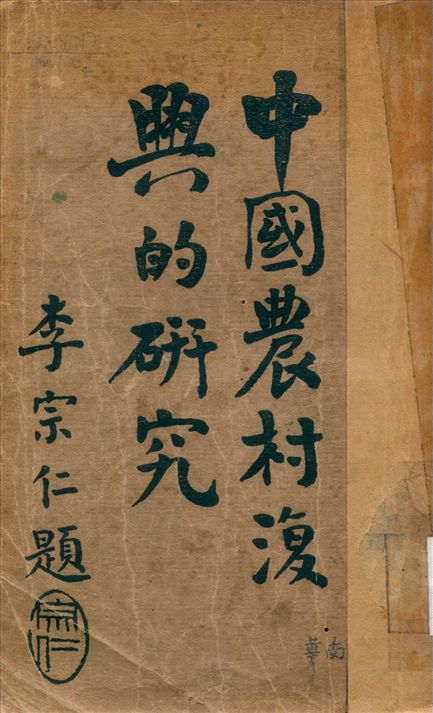 中國農村復
興的研究
李宗仁題
宗仁
華南